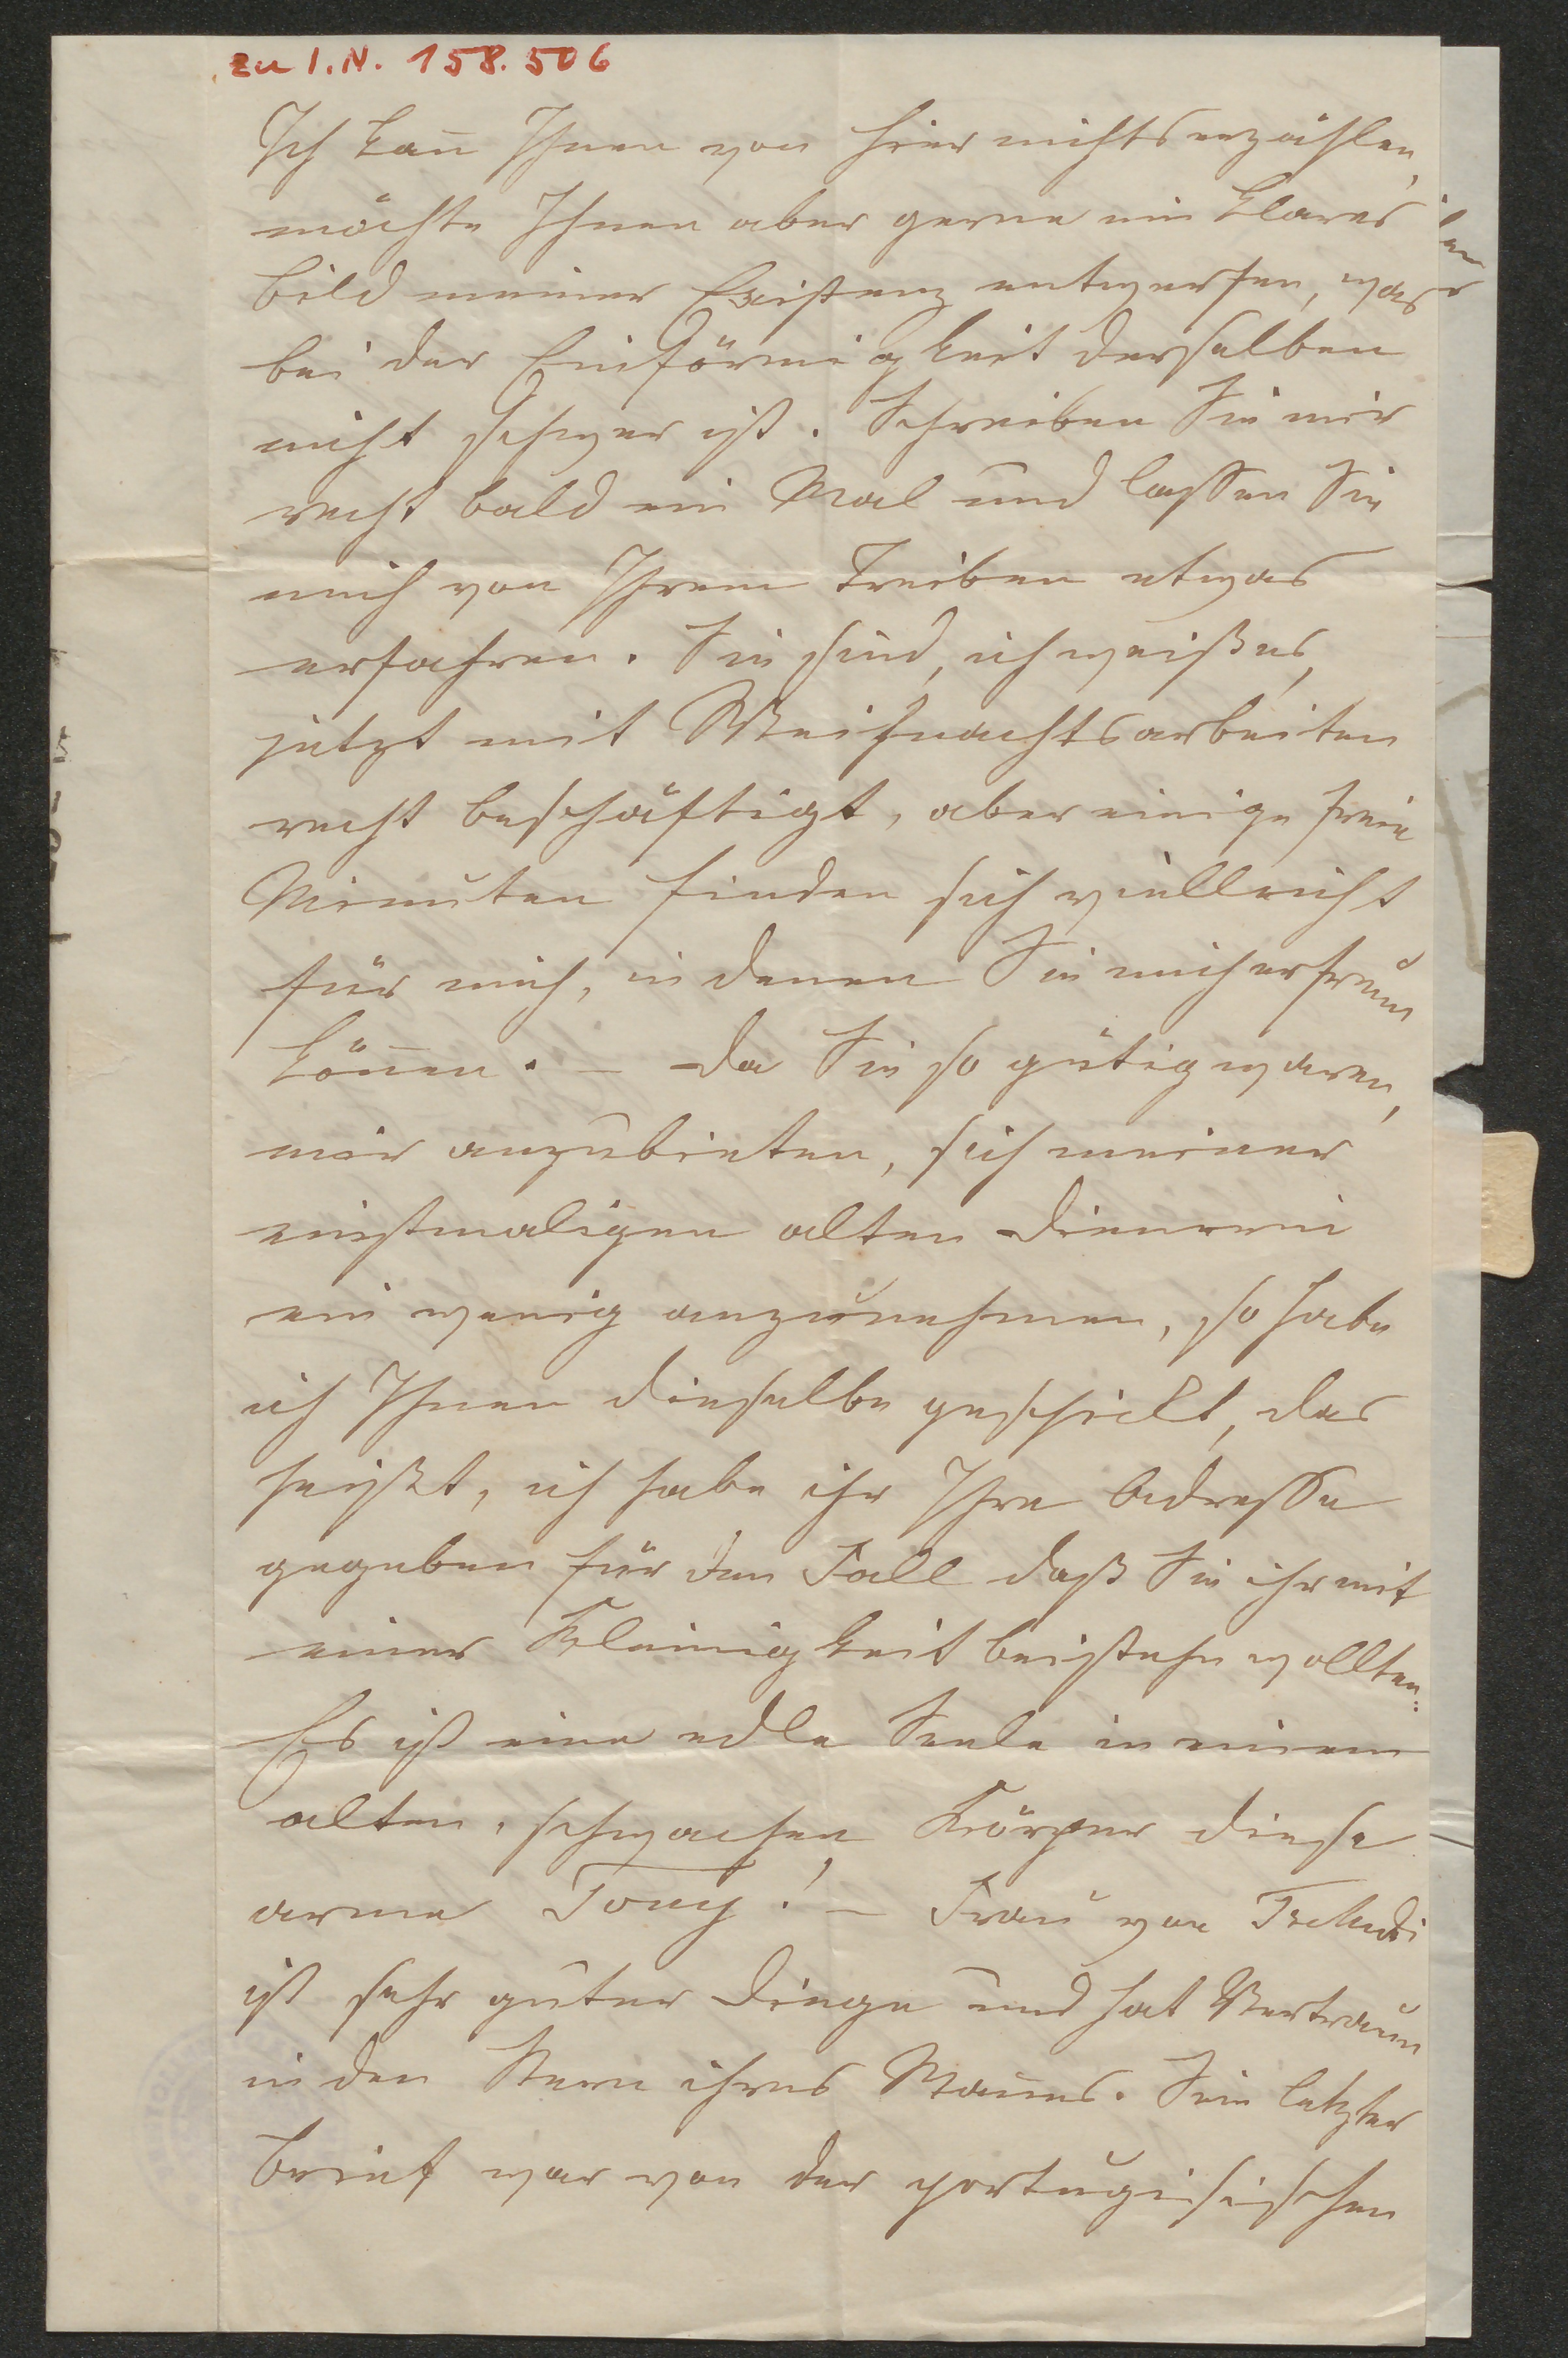 zu I.N. 158.506
Ich kan̄ Ihnen von hier nichts erzählen,
möchte Ihnen aber gerne ein klares
Bild meiner Existenz entwerfen, was
bei der Einförmigkeit derselben
nicht schwer ist. Schreiben Sie mir
recht bald ein Mal und lassen Sie
mich von Ihrem Treiben etwas
erfahren. Sie sind, ich weiß es,
jetzt mit Weihnachtsarbeiten
recht beschäftigt, aber einige freie
Minuten finden sich vielleicht
für mich, in denen Sie mich erfreun
kön̄en. – Da Sie so gütig waren,
mir anzubieten, sich meiner
einstmaligen alten Dienerin
ein wenig anzunehmen, so habe
ich Ihnen dieselbe geschickt, das
heißt, ich habe ihr Ihre Adresse
gegeben für den Fall daß Sie ihr mit
einer Kleinigkeit beistehn wollten.
Es ist eine edle Seele in einem
alten, schwachen Körper diese
arme Tony! – Frau von Tschudi
ist sehr guter Dinge und hat Vertraun
in den Stern ihres Man̄es. Sein letzter
Brief war von der portugisischen